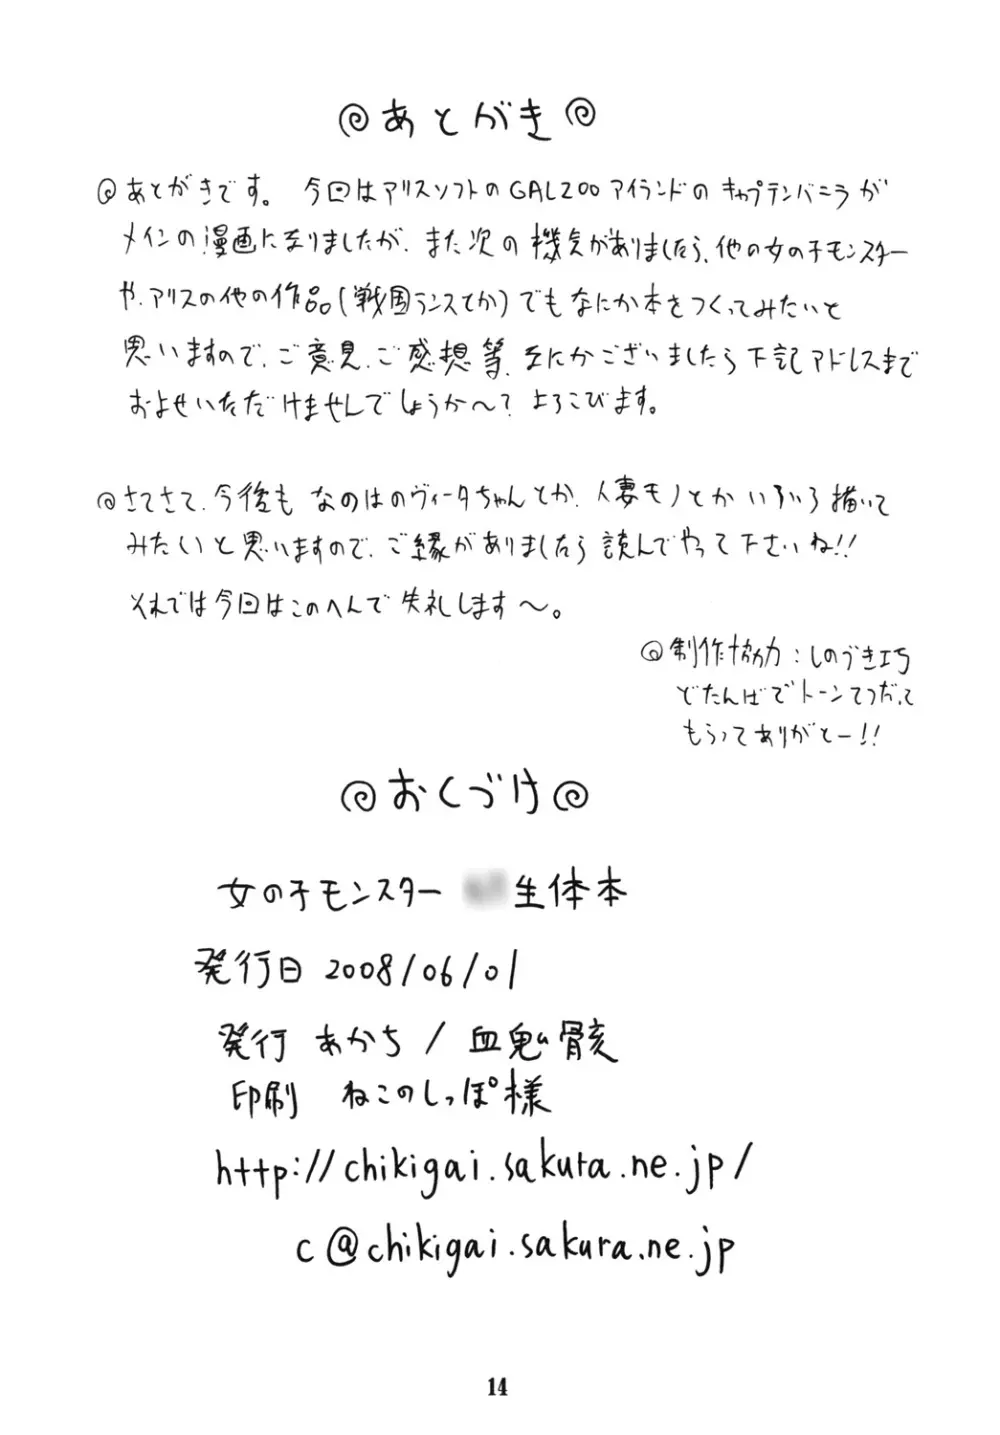 あとがき
あとがきです。 今回はアリスソフトのGALZOOアイランドのキャプテンバニラが
メインの漫画になりましたが、また次の機会がありましたら、他の女の子モンスター
や、アリスの他の作品(戦国ランスとか)でもなにか本をつくってみたいと
思いますので、ご意見、ご感想等、なにかございましたら下記アドレスまで
およせいただけませんでしょうか〜? よろこびます。
さてさて、今後も なのはのヴィータちゃんとか、人妻モノとかいろいろ描いて
みたいと思いますので、ご縁がありましたら読んでやって下さいね!!
それでは今回はこのへんで失礼します〜。
制作協力:しのづき工巧
どたんばでトーンてつだって
もらってありがとー!!
おくづけ
女の子モンスター 生体本
発行日 2008/06/01
発行 あかち / 血鬼骸
印刷 ねこのしっぽ様
http://chikigai.sakura.ne.jp/
c@chikigai.sakura.ne.jp
14